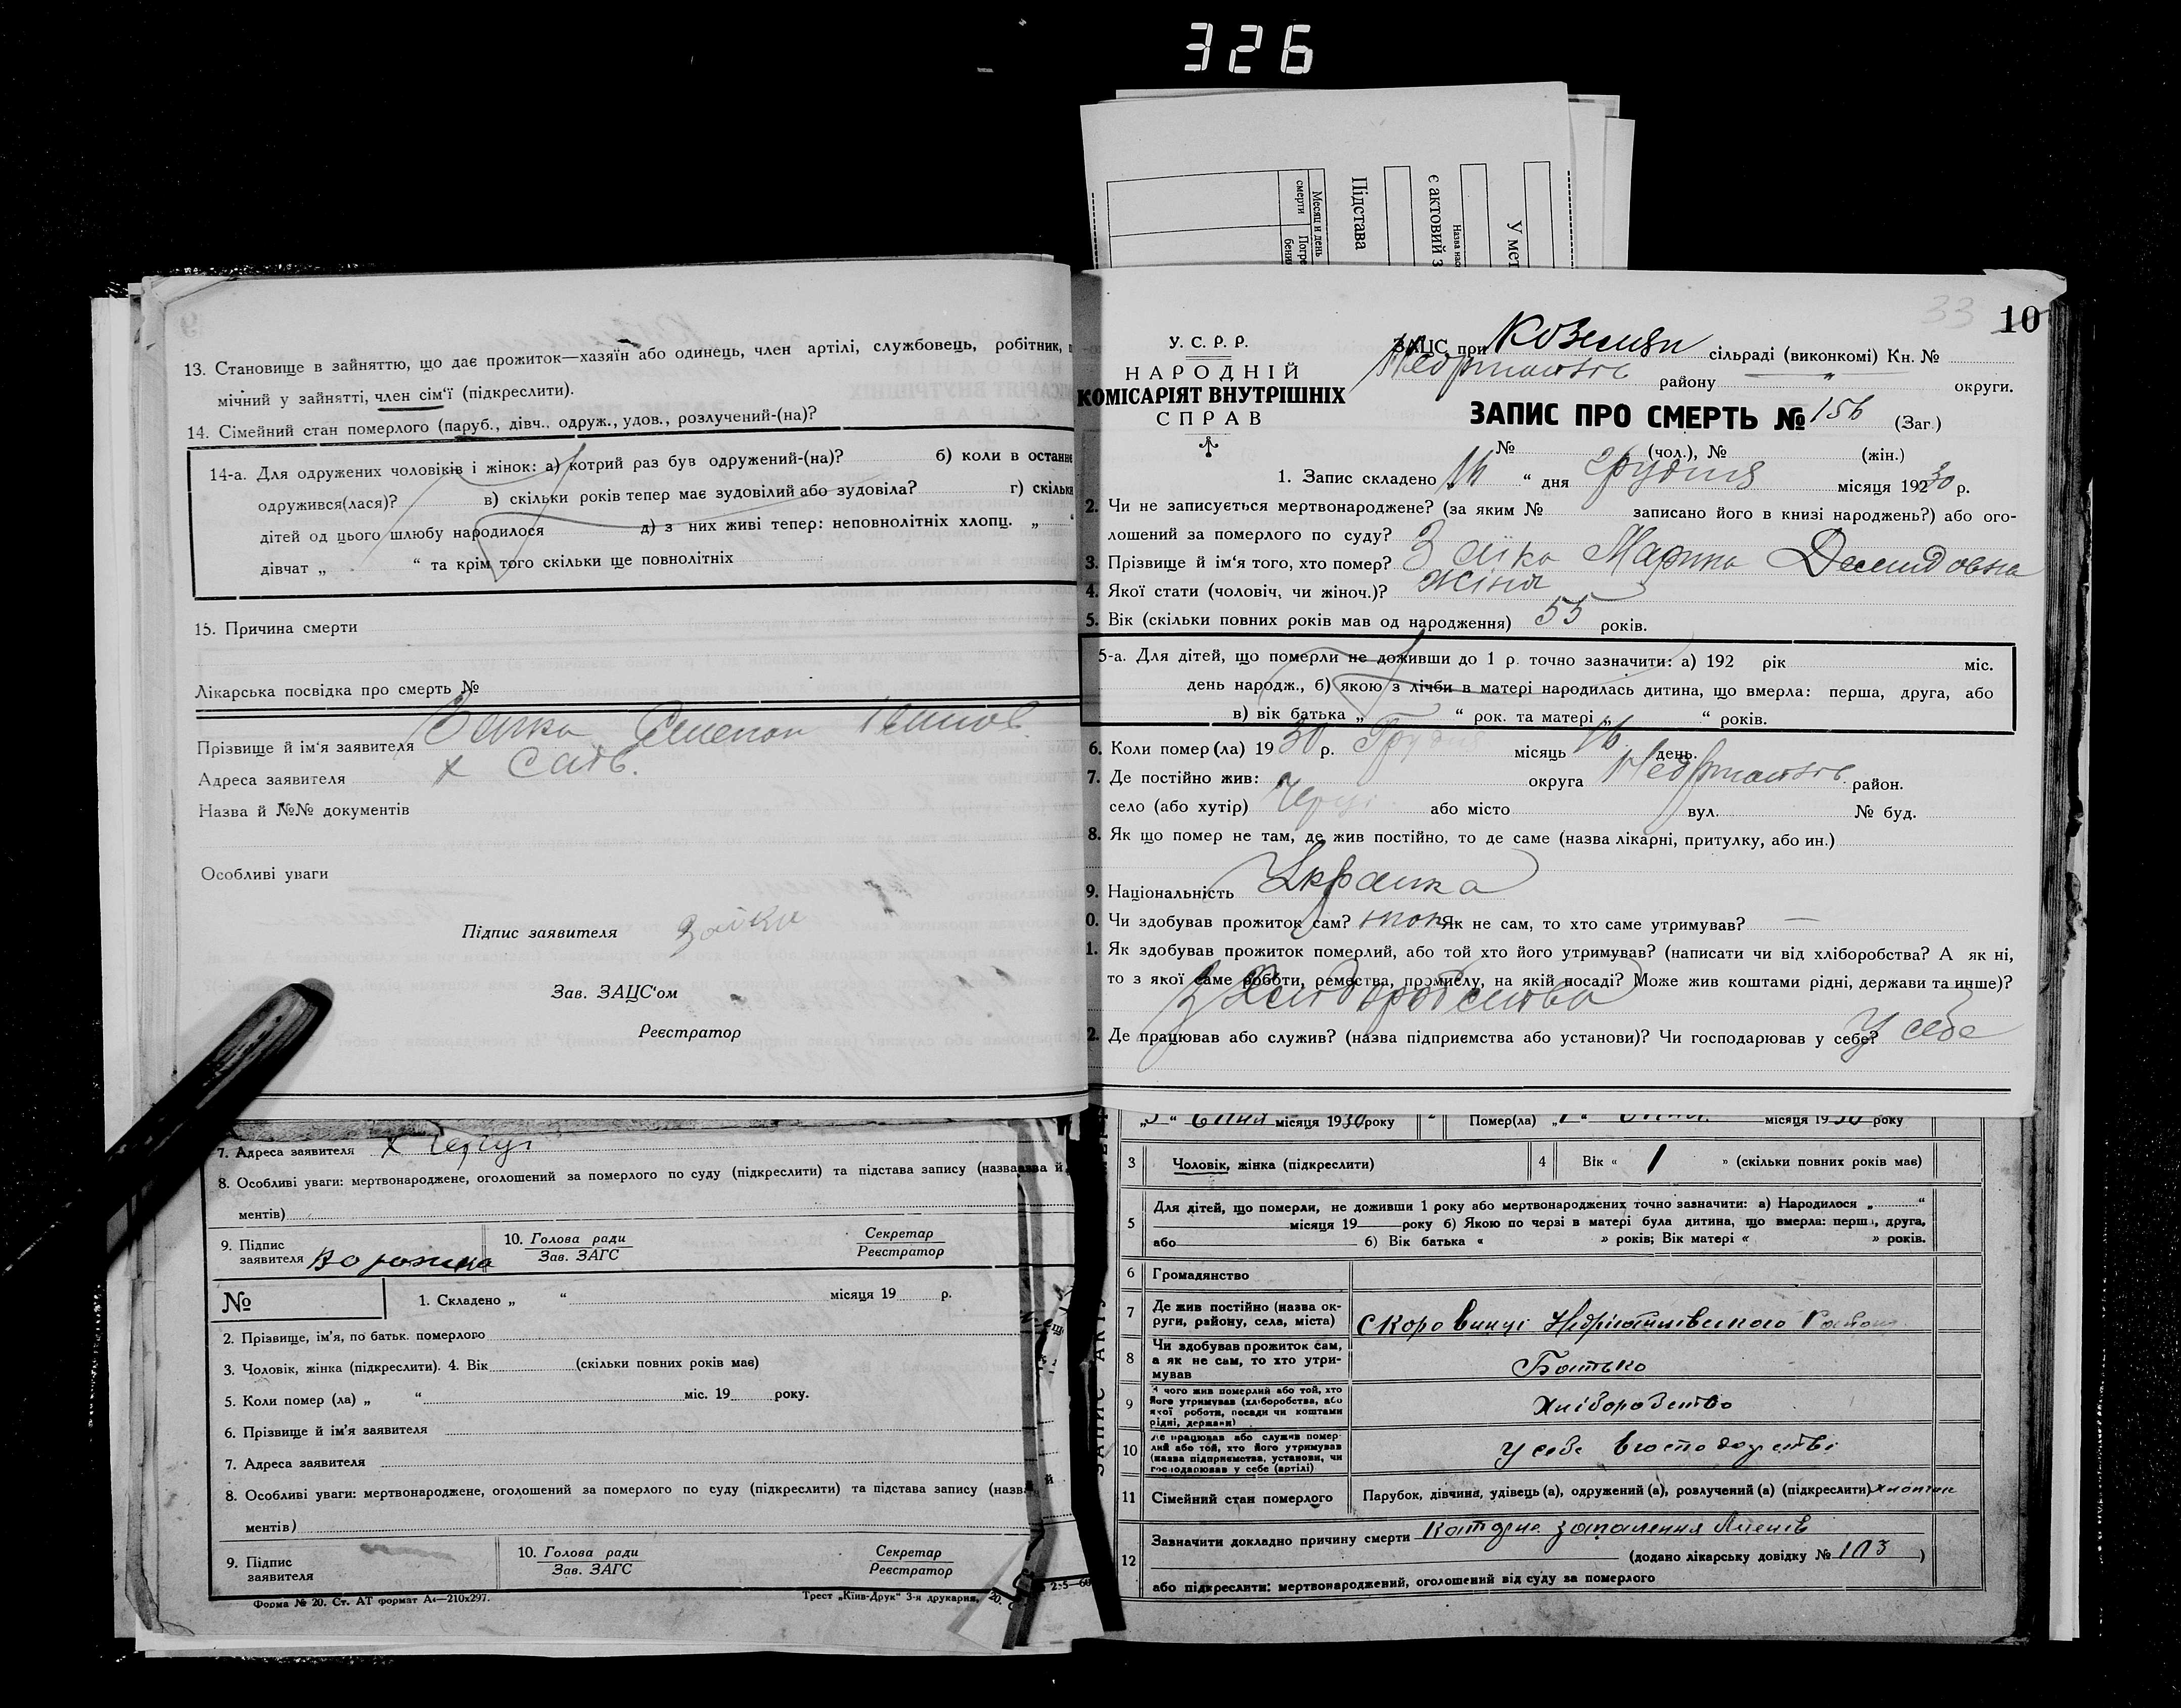 326
Підстава
є актовий з
У мет
Месяц и день
смерти
13. Становище в зайняттю, що дає прожиток—хазяїн або одинець, член артілі, службовець, робітник,
мічний у зайнятті, член сім'ї (підкреслити).
14. Сімейний стан померлого (паруб., дівч., одруж., удов., розлучений-(на)?
14-а. Для одружених чоловіків і жінок: а) котрий раз був одружений-(на)? б) коли в останнє
одружився(лася)? в) скільки років тепер має зудовілий або зудовіла? г) скільки
дітей од цього шлюбу народилося д) з них живі тепер: неповнолітніх хлопц. „ “
дівчат „ “ та крім того скільки ще повнолітніх
15. Причина смерти
Лікарська посвідка про смерть №
Прізвище й ім'я заявителя Заика
Адреса заявителя х
Назва й №№ документів
Особливі уваги
Підпис заявителя Заїка
Зав. ЗАЦС'ом
Реєстратор
7. Адреса заявителя х Черчі
8. Особливі уваги: мертвонароджене, оголошений за померлого по суду (підкреслити) та підстава запису
ментів)
9. Підпис заявителя
10. Голова ради
Зав. ЗАГС
Секретар
Реєстратор
№
1. Складено „ “ місяця 19 р.
2. Прізвище, ім'я, по батьк. померлого
3. Чоловік, жінка (підкреслити). 4. Вік (скільки повних років має)
5. Коли помер (ла) „ “ міс. 19 року.
6. Прізвище й ім'я заявителя
7. Адреса заявителя
8. Особливі уваги: мертвонароджене, оголошений за померлого по суду (підкреслити) та підстава запису (назва й
ментів)
9. Підпис заявителя
10. Голова ради
Зав. ЗАГС
Секретар
Реєстратор
Форма № 20. Ст. АТ формат А4—210х297.
Трест „Київ-Друк“ 3-я друкарня.
33 10
У. С. Р. Р.
НАРОДНІЙ
КОМІСАРІЯТ ВНУТРІШНІХ
СПРАВ
ЗАЦС при сільраді (виконкомі) Кн. №
району „ округи.
ЗАПИС ПРО СМЕРТЬ № 156 (Заг.)
№ (чол.), № (жін.)
1. Запис складено „16 “ дня Грудня місяця 1930 р.
2. Чи не записується мертвонароджене? (за яким № записано його в книзі народжень?) або ого-
лошений за померлого по суду?
3. Прізвище й ім'я того, хто помер? Заїка Марина Демидовна
4. Якої стати (чоловіч, чи жіноч.)? жіноч
5. Вік (скільки повних років мав од народження) 55 років.
5-а. Для дітей, що померли не доживши до 1 р. точно зазначити: а) 192 рік міс.
день народж., б) якою з лічби в матері народилась дитина, що вмерла: перша, друга, або
в) вік батька „ “ рок. та матері „ “ років.
6. Коли помер (ла) 1930 р. Грудня місяць 16 день.
7. Де постійно жив: округа район.
село (або хутір) Черчі або місто вул. № буд.
8. Як що помер не там, де жив постійно, то де саме (назва лікарні, притулку, або ин.)
9. Національність Українка
0. Чи здобував прожиток сам? Як не сам, то хто саме утримував? —
1. Як здобував прожиток померлий, або той хто його утримував? (написати чи від хліборобства? А як ні,
то з якої саме роботи, ремества, промислу, на якій посаді? Може жив коштами рідні, держави та инше)?
З Хліборобства
2. Де працював або служив? (назва підприємства або установи)? Чи господарював у себе? у себе
місяця 1930 року Помер(ла) місяця 1930 року
3 Чоловік, жінка (підкреслити) 4 Вік « 1 » (скільки повних років має)
5 Для дітей, що померли, не доживши 1 року або мертвонароджених точно зазначити: а) Народилося „ “
місяця 19 року б) Якою по черзі в матері була дитина, що вмерла: перша, друга,
або б) Вік батька « » років; Вік матері « » років.
6 Громадянство
7 Де жив постійно (назва ок-
руги, району, села, міста)
8 Чи здобував прожиток сам,
а як не сам, то хто утри-
мував Батько
9 З чого жив померлий або той, хто
його утримував (хліборобства, або
якої роботи, посади чи коштами
рідні, держави) Хліборобство
10 Де працював або служив помер-
лий або той, хто його утримував
(назва підприємства, установи, чи
господарював у себе (артілі) у себе в господарстві
11 Сімейний стан померлого Парубок, дівчина, удівець (а), одружений (а), розлучений (а) (підкреслити) хлопчик
12 Зазначити докладно причину смерти
(додано лікарську довідку № 103 )
або підкреслити: мертвонароджений, оголошений від суду за померлого